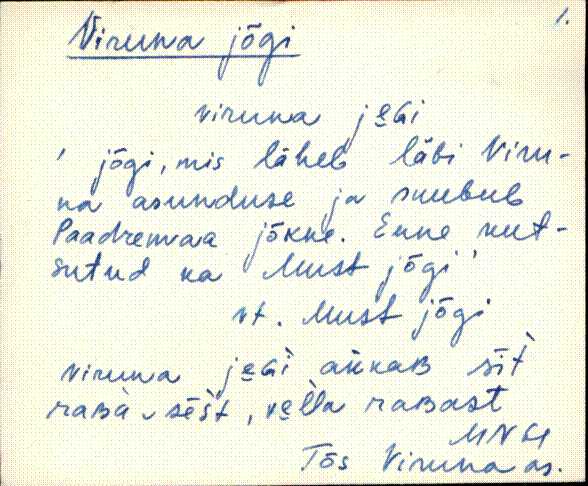 1.
Viruna jõgi
viruna je̮Gi
' jõgi, mis läheb läbi Viru-
na asunduse ja suubub
Paadremaa jõkke. Enne kut-
sutud ka Must jõgi '
vt. Must jõgi
viruna je̮Gì akkaB sìt
raBa sèšt, ve̮lla raBast
Tõs Viruna as.